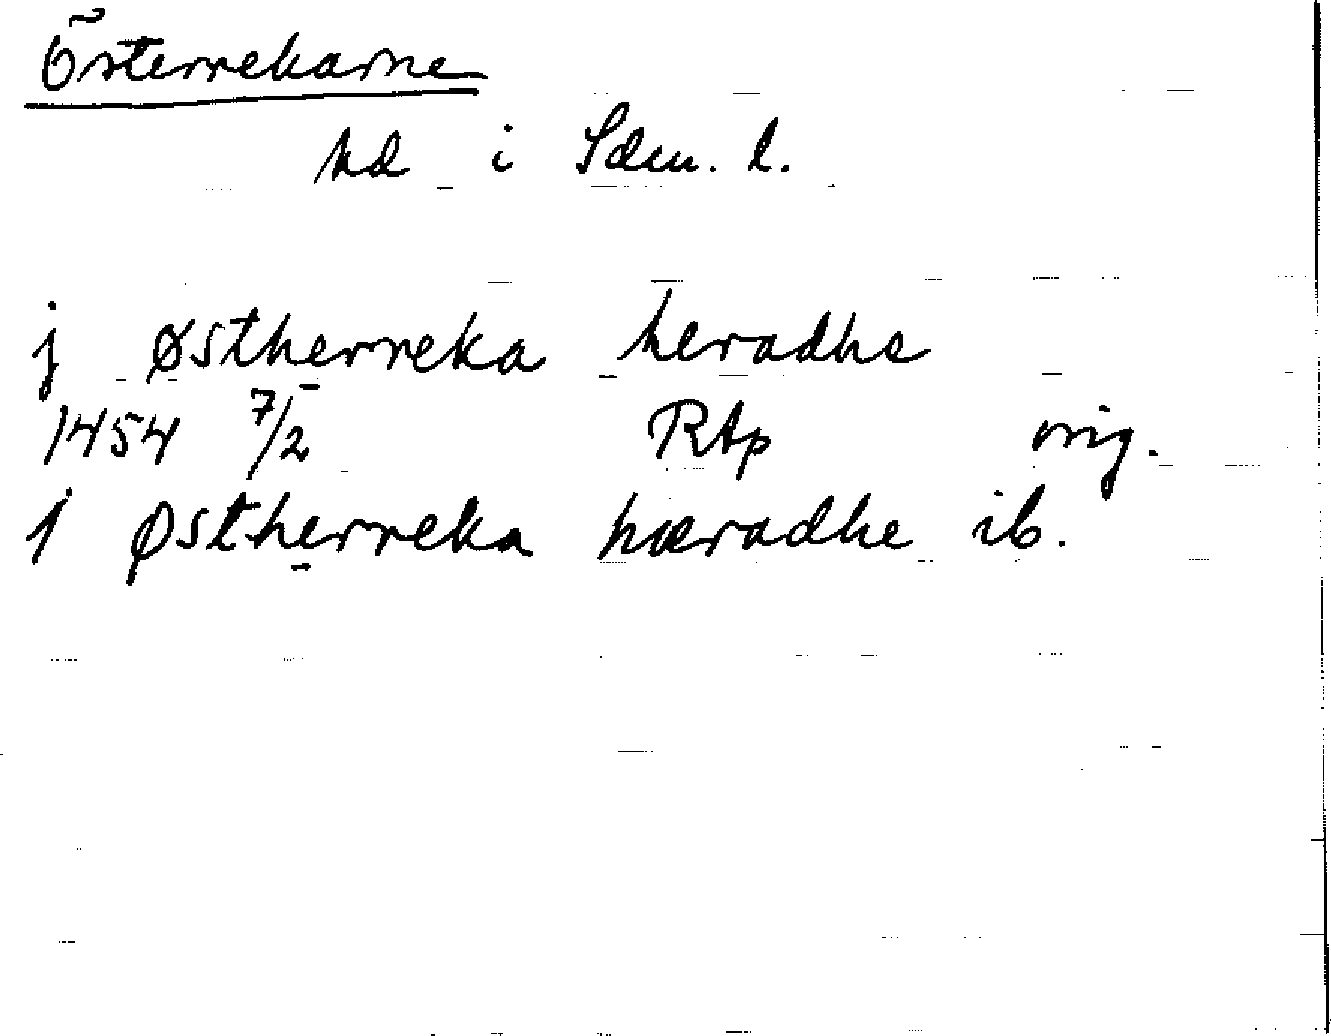 Österrekarne
hd i Södm. l.
j østherreka heradhe
1454 7/2 RAp orig.
j østherreka hæradhe ib.